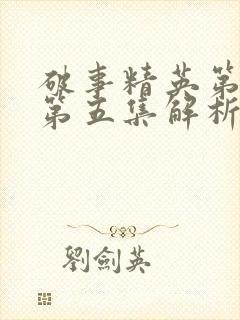 破事精英第
第五集解析
劉劍英